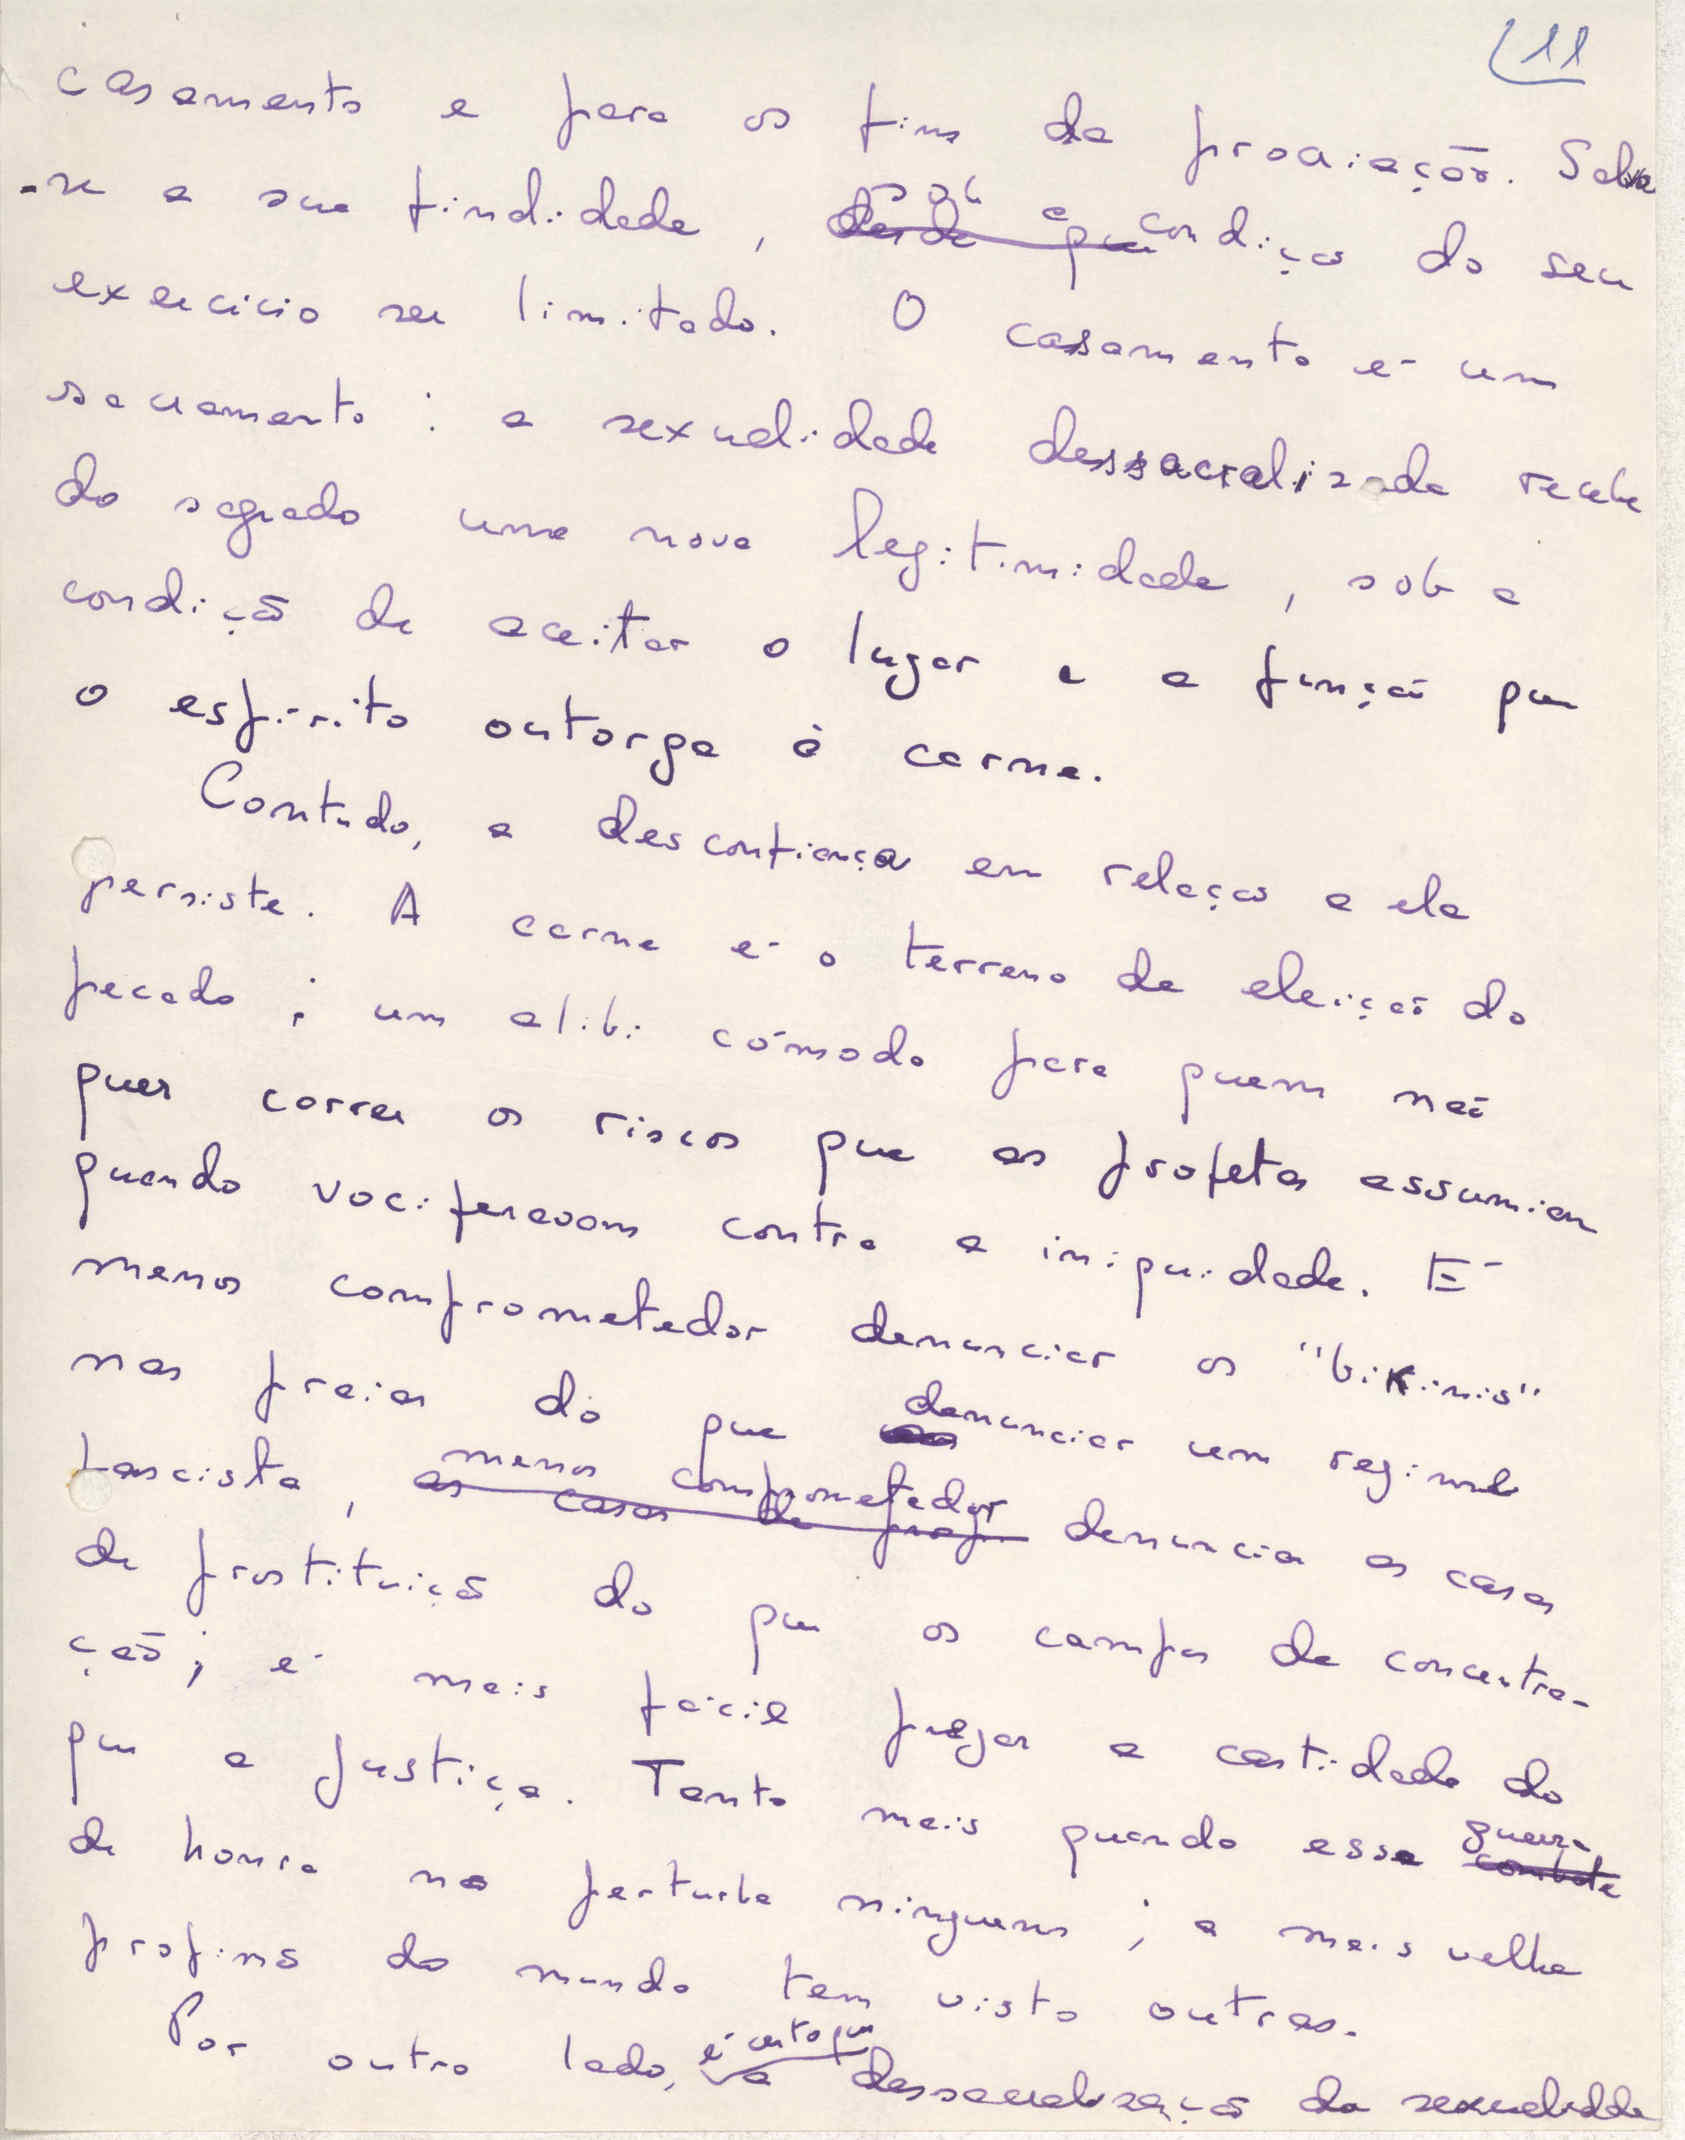 11
casamento e para os fins da procriação. Salva
-se a sua finalidade, ~~desde que~~ sob condição do seu
exercício ser limitado. O casamento é um
sacramento: a sexualidade dessacralizada recebe
do sagrado uma nova legitimidade, sob a
condição de aceitar o lugar e a função que
o espírito outorga à carne.
Contudo, a desconfiança em relação a ela
persiste. A carne é o terreno de eleição do
pecado; um alibi cómodo para quem não
quer correr os riscos que os profetas assumiam
quando vociferavam contra a iniquidade. É
menos comprometedor denunciar os "bikinis"
nas praias do que denunciar um regime
fascista, ~~as casas de~~ menos comprometedor denunciar as casas
de prostituição do que os campos de concentra-
ção; é mais fácil pregar a castidade do
que a justiça. Tanto mais quando essa ~~combate~~ guerra
de honra não perturba ninguem; a mais velha
profissão do mundo tem visto outras.
Por outro lado, é certo que a dessacralização da sexualidade